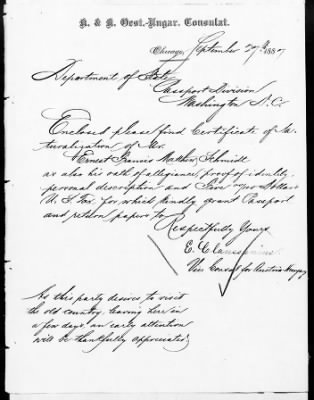 K. & K. Oest.-Ungar. Consulat.
Chicago, September 27th 1887
Department of State
Passport Division
Washington D.C.
Enclosed please find Certificate of Na-
turalization of Mr.
Ernest Francis Mathew Schmidt
as also his oath of allegiance, proof of identity,
personal description and Two Dollars
U.S. Tax. for which kindly grant Passport
and return papers to
Respectfully Yours
E. Claussenius
Vice Consul for Austria Hungary
As this party desires to visit
the old country, leaving here in
a few days, an early attention
will be thankfully appreciated.